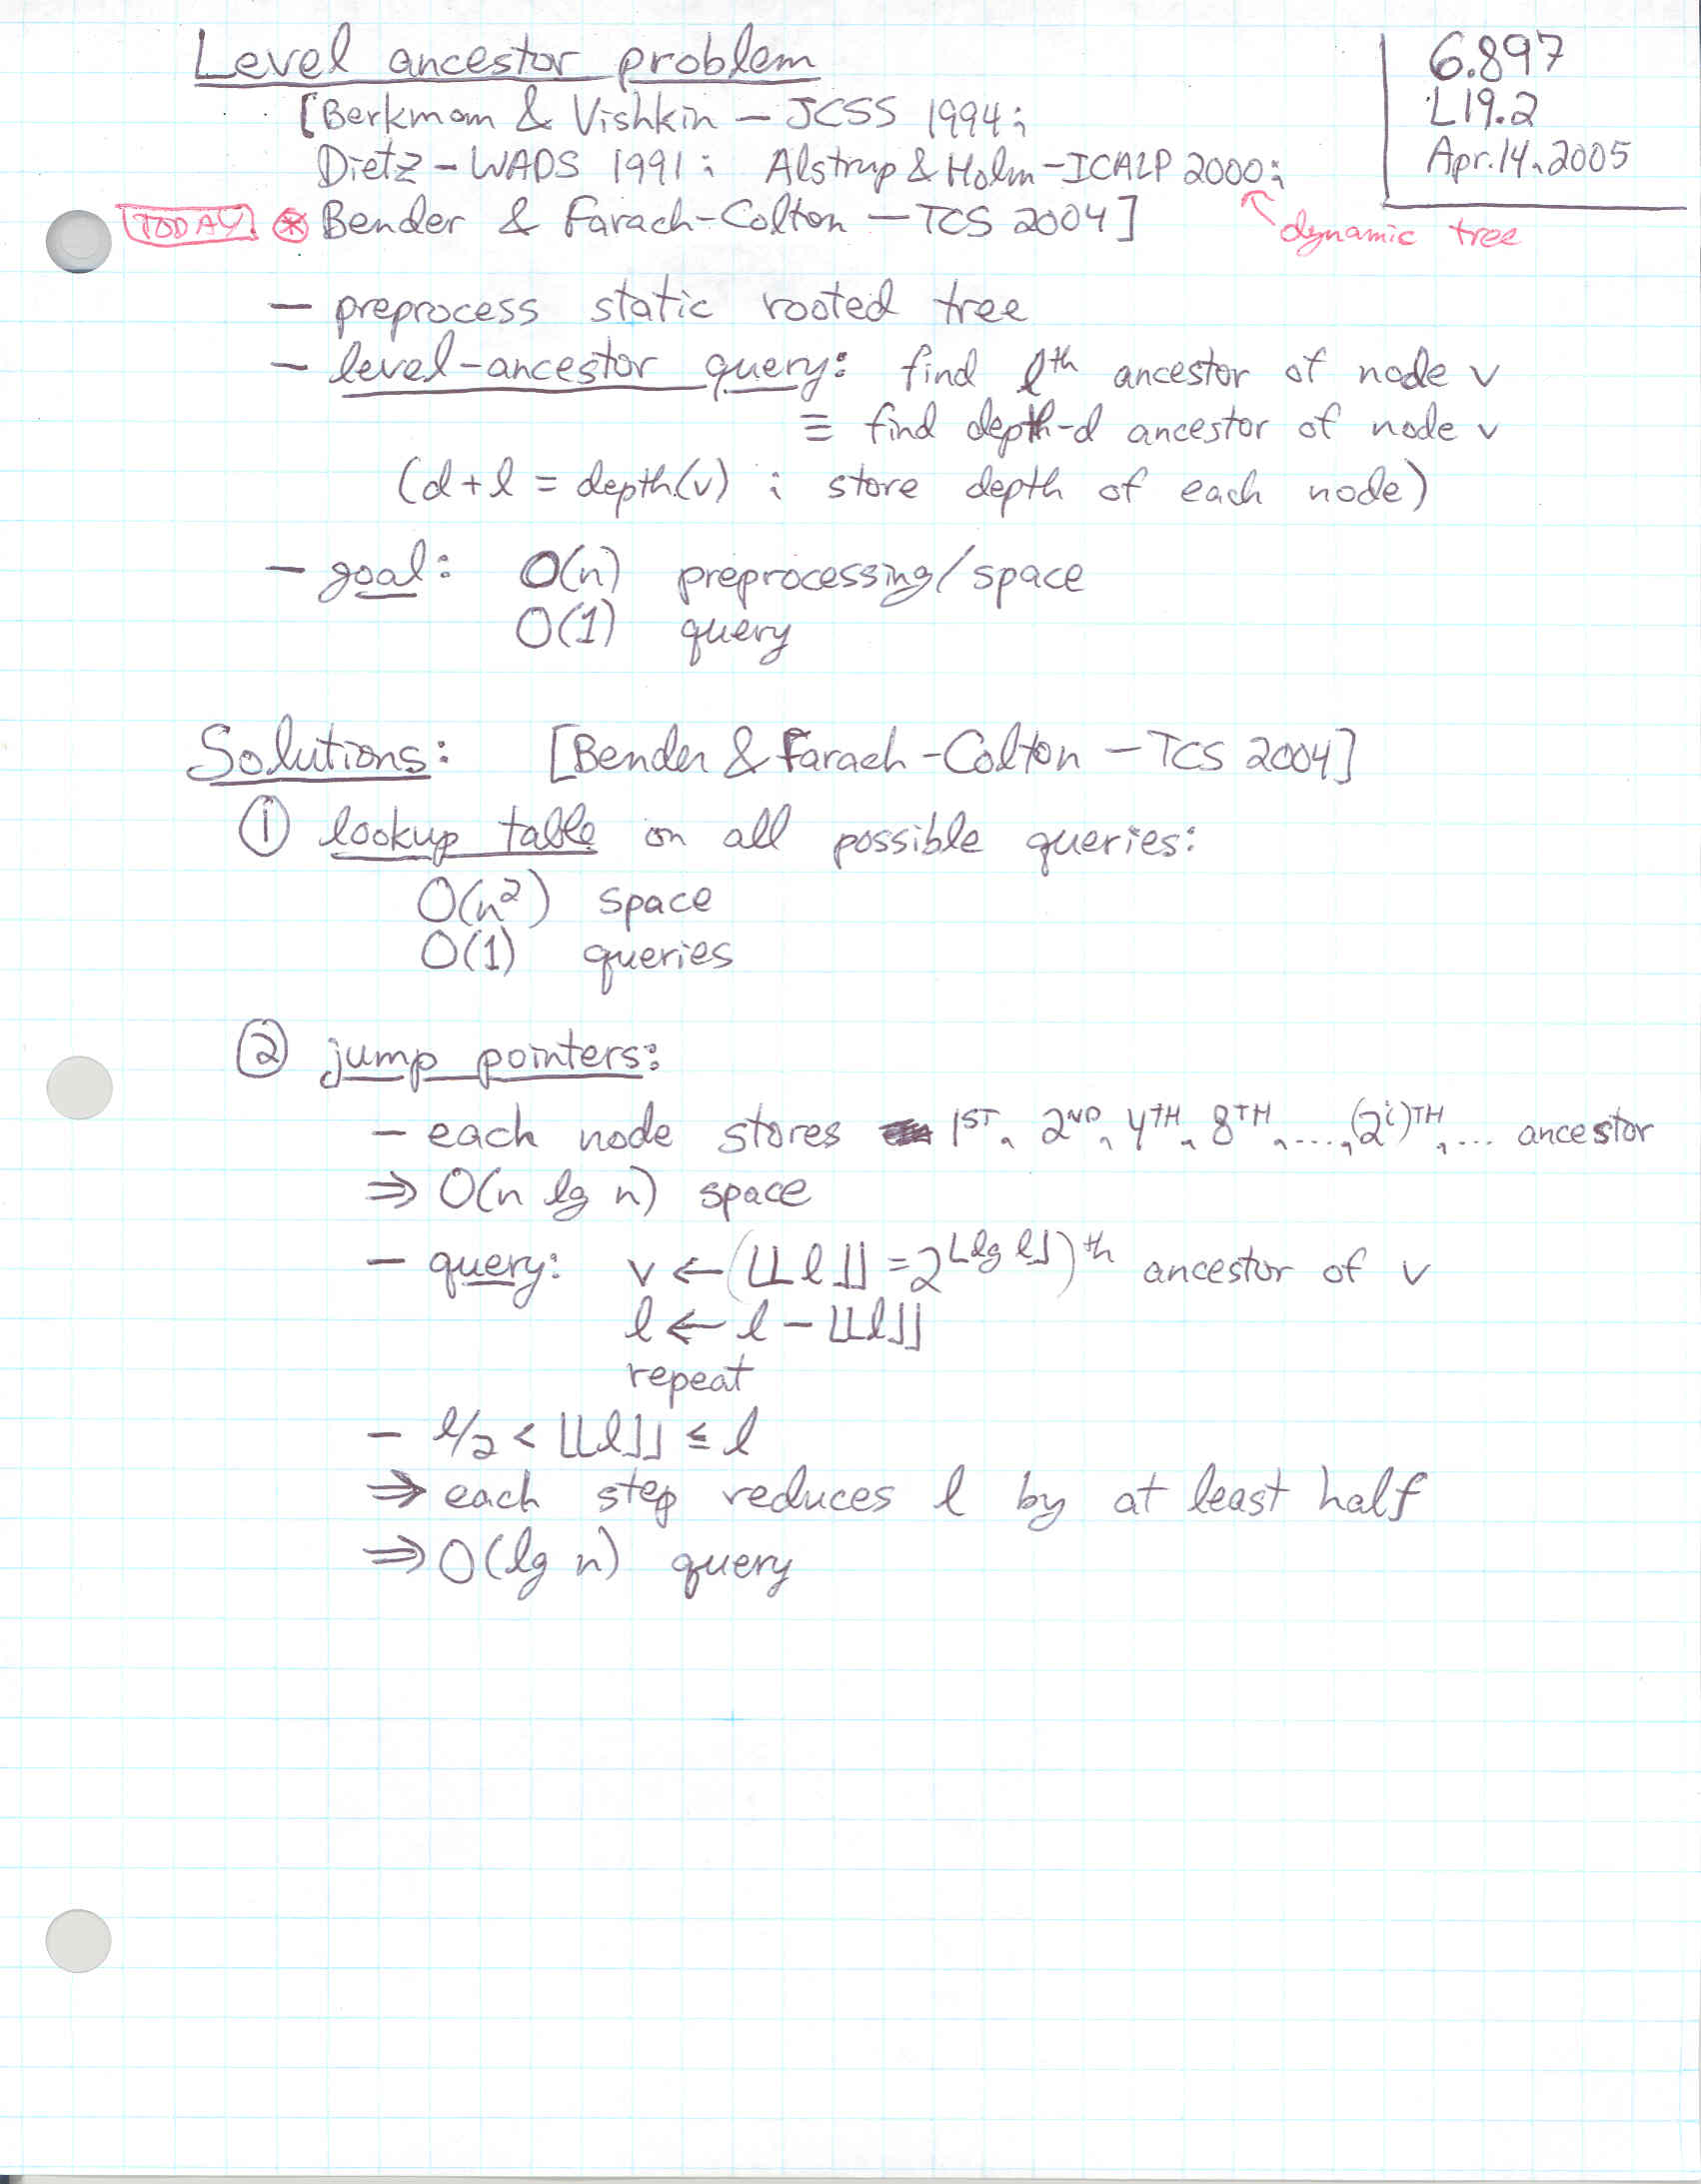 Level ancestor problem
6.897
L19.2
Apr. 14, 2005
[Berkman & Vishkin — JCSS 1994;
Dietz – WADS 1991; Alstrup & Holm – ICALP 2000;
TODAY ⊛ Bender & Farach-Colton — TCS 2004]
dynamic tree
— preprocess static rooted tree
— level-ancestor query: find lth ancestor of node v
≡ find depth-d ancestor of node v
(d + l = depth(v) ; store depth of each node)
— goal: O(n) preprocessing/space
O(1) query
Solutions: [Bender & Farach-Colton — TCS 2004]
① lookup table on all possible queries:
O(n²) space
O(1) queries
② jump pointers:
— each node stores 1ST, 2ND, 4TH, 8TH, ..., (2^i)TH, ... ancestor
⇒ O(n lg n) space
— query: v ← (⌊⌊l⌋⌋ = 2^⌊lg l⌋)th ancestor of v
l ← l − ⌊⌊l⌋⌋
repeat
— l/2 < ⌊⌊l⌋⌋ ≤ l
⇒ each step reduces l by at least half
⇒ O(lg n) query